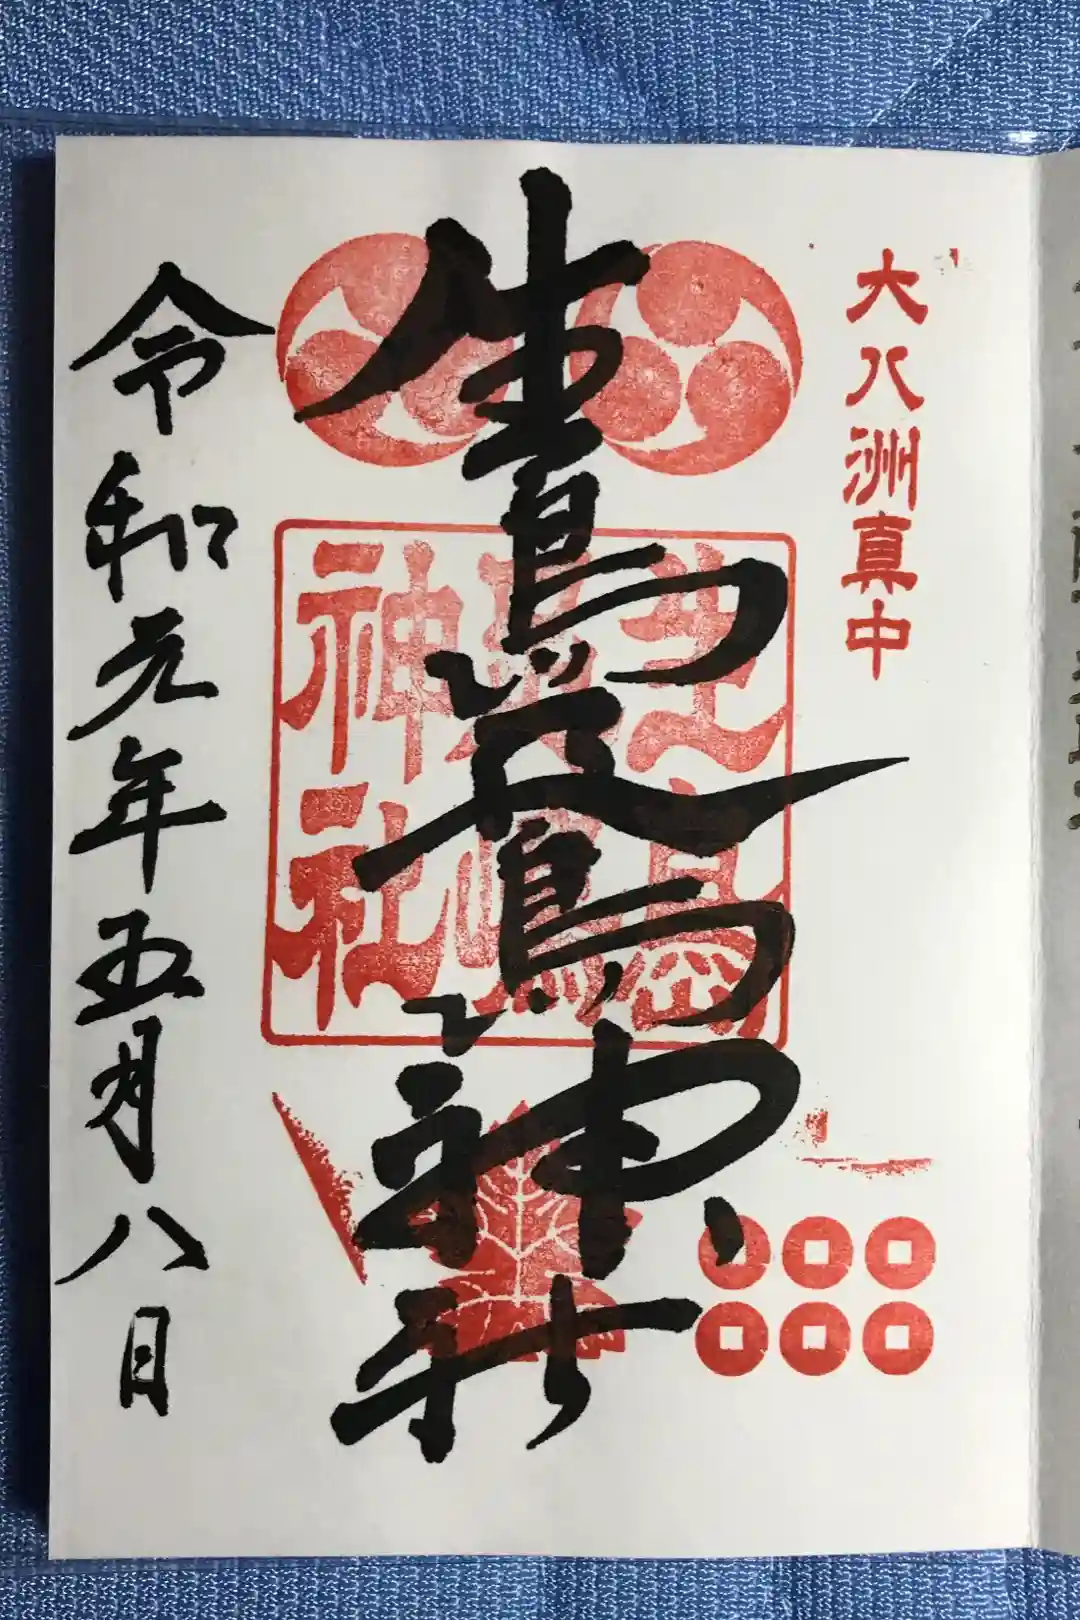 大八洲真中
生島足島神社
生島
足嶋
神社
令和元年五月八日